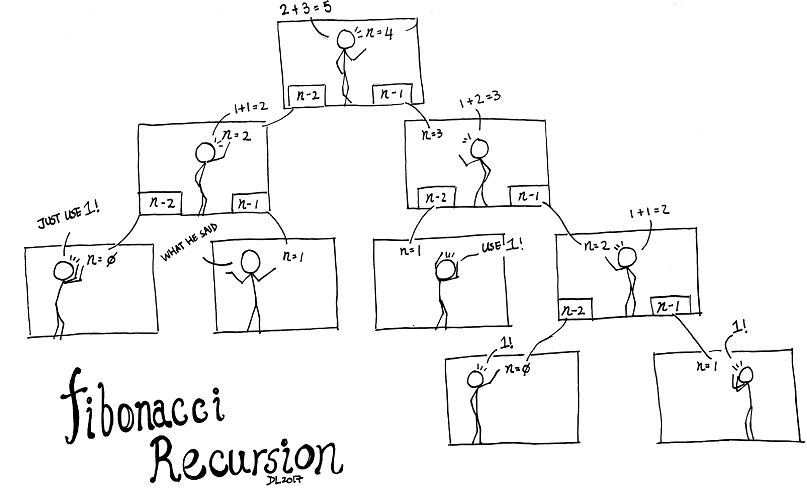 2+3=5
n=4
n-2
n-1
1+1=2
n=2
n-2
n-1
1+2=3
n=3
n-2
n-1
JUST USE 1!
n=ø
WHAT HE SAID
n=1
n=1
USE 1!
1+1=2
n=2
n-2
n-1
1!
n=ø
1!
n=1
fibonacci
Recursion
DL2017